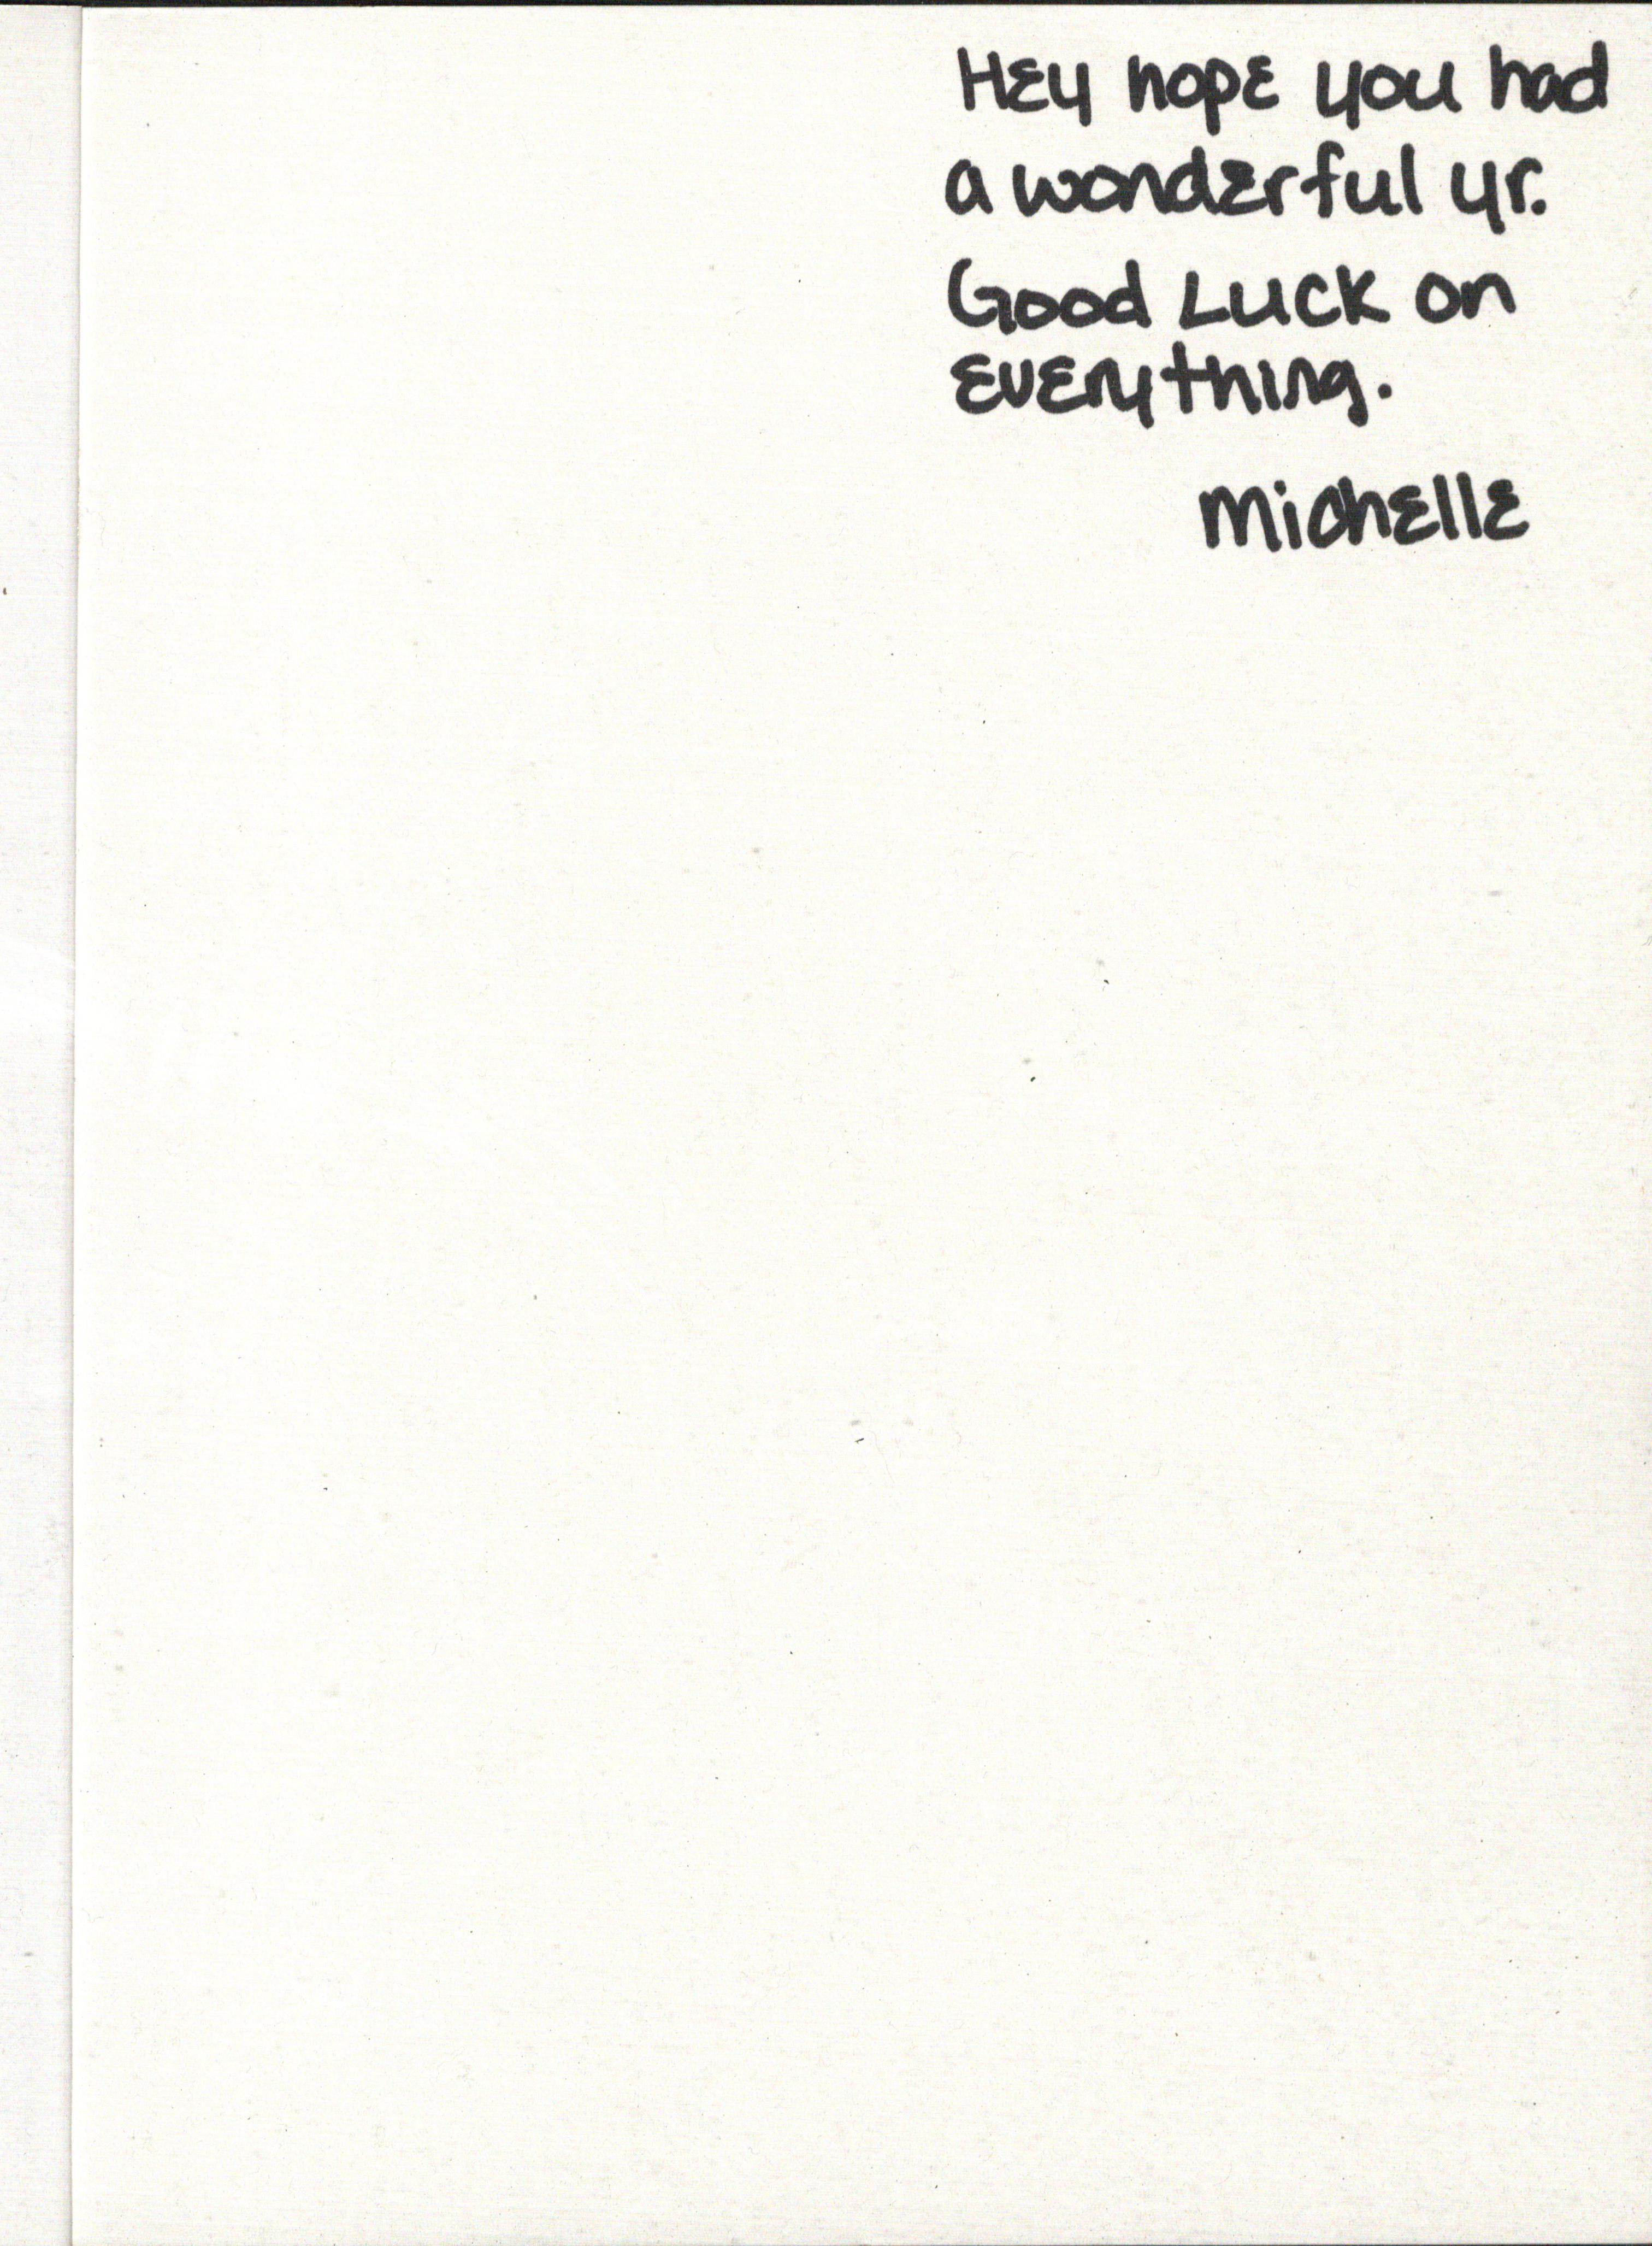 Hey hope you had
a wonderful yr.
Good Luck on
everything.
Michelle